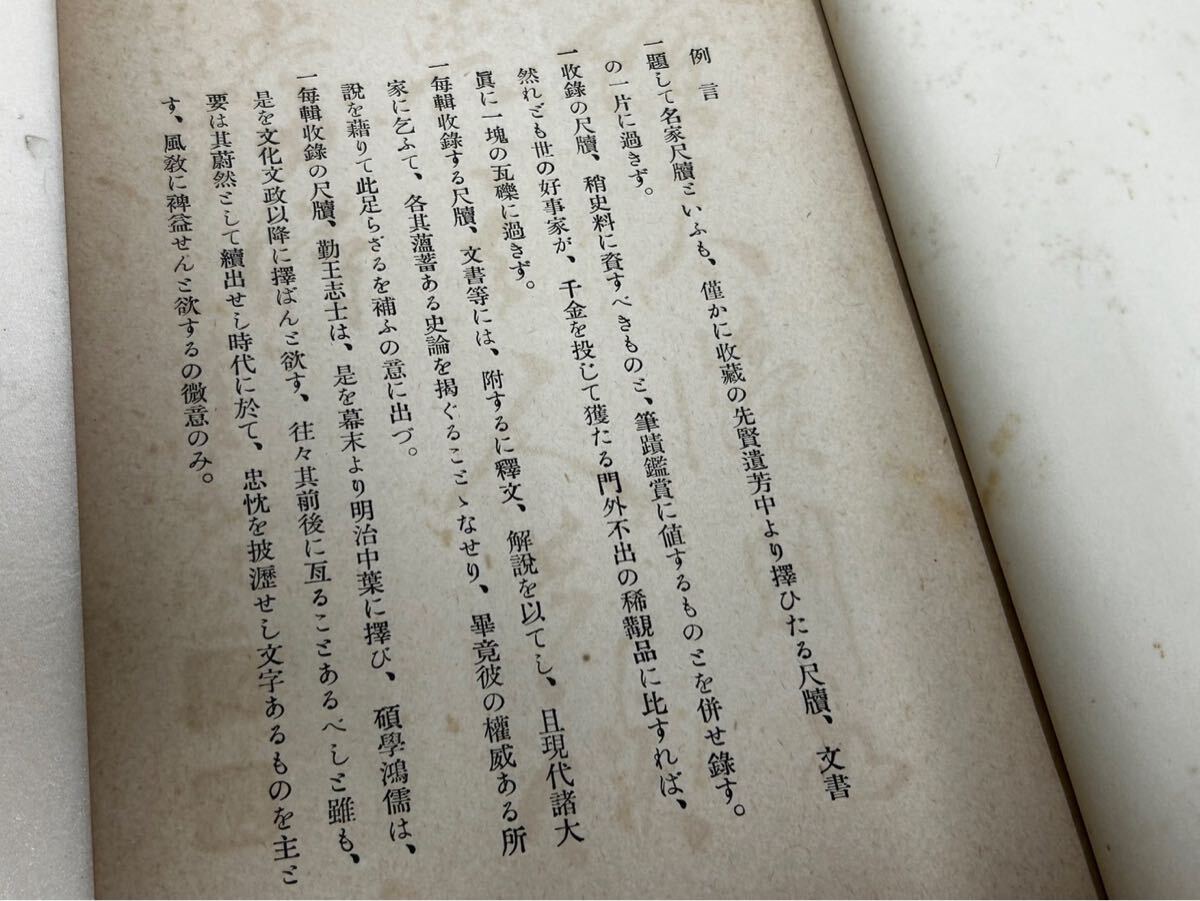 例言
一題して名家尺牘といふも、僅かに收藏の先賢遺芳中より擇ひたる尺牘、文書
の一片に過きず。
一收錄の尺牘、稍史料に資すべきものと、筆蹟鑑賞に値するものとを併せ錄す。
然れども世の好事家が、千金を投じて獲たる門外不出の稀覯品に比すれば、
眞に一塊の瓦礫に過きず。
一每輯收錄する尺牘、文書等には、附するに釋文、解說を以てし、且現代諸大
家に乞ふて、各其薀蓄ある史論を揭ぐることゝなせり、畢竟彼の權威ある所
說を藉りて此足らざるを補ふの意に出づ。
一每輯收錄の尺牘、勤王志士は、是を幕末より明治中葉に擇び、碩學鴻儒は、
是を文化文政以降に擇ばんと欲す、往々其前後に亙ることあるべしと雖も、
要は其蔚然として續出せし時代に於て、忠忱を披瀝せし文字あるものを主と
す、風敎に裨益せんと欲するの微意のみ。